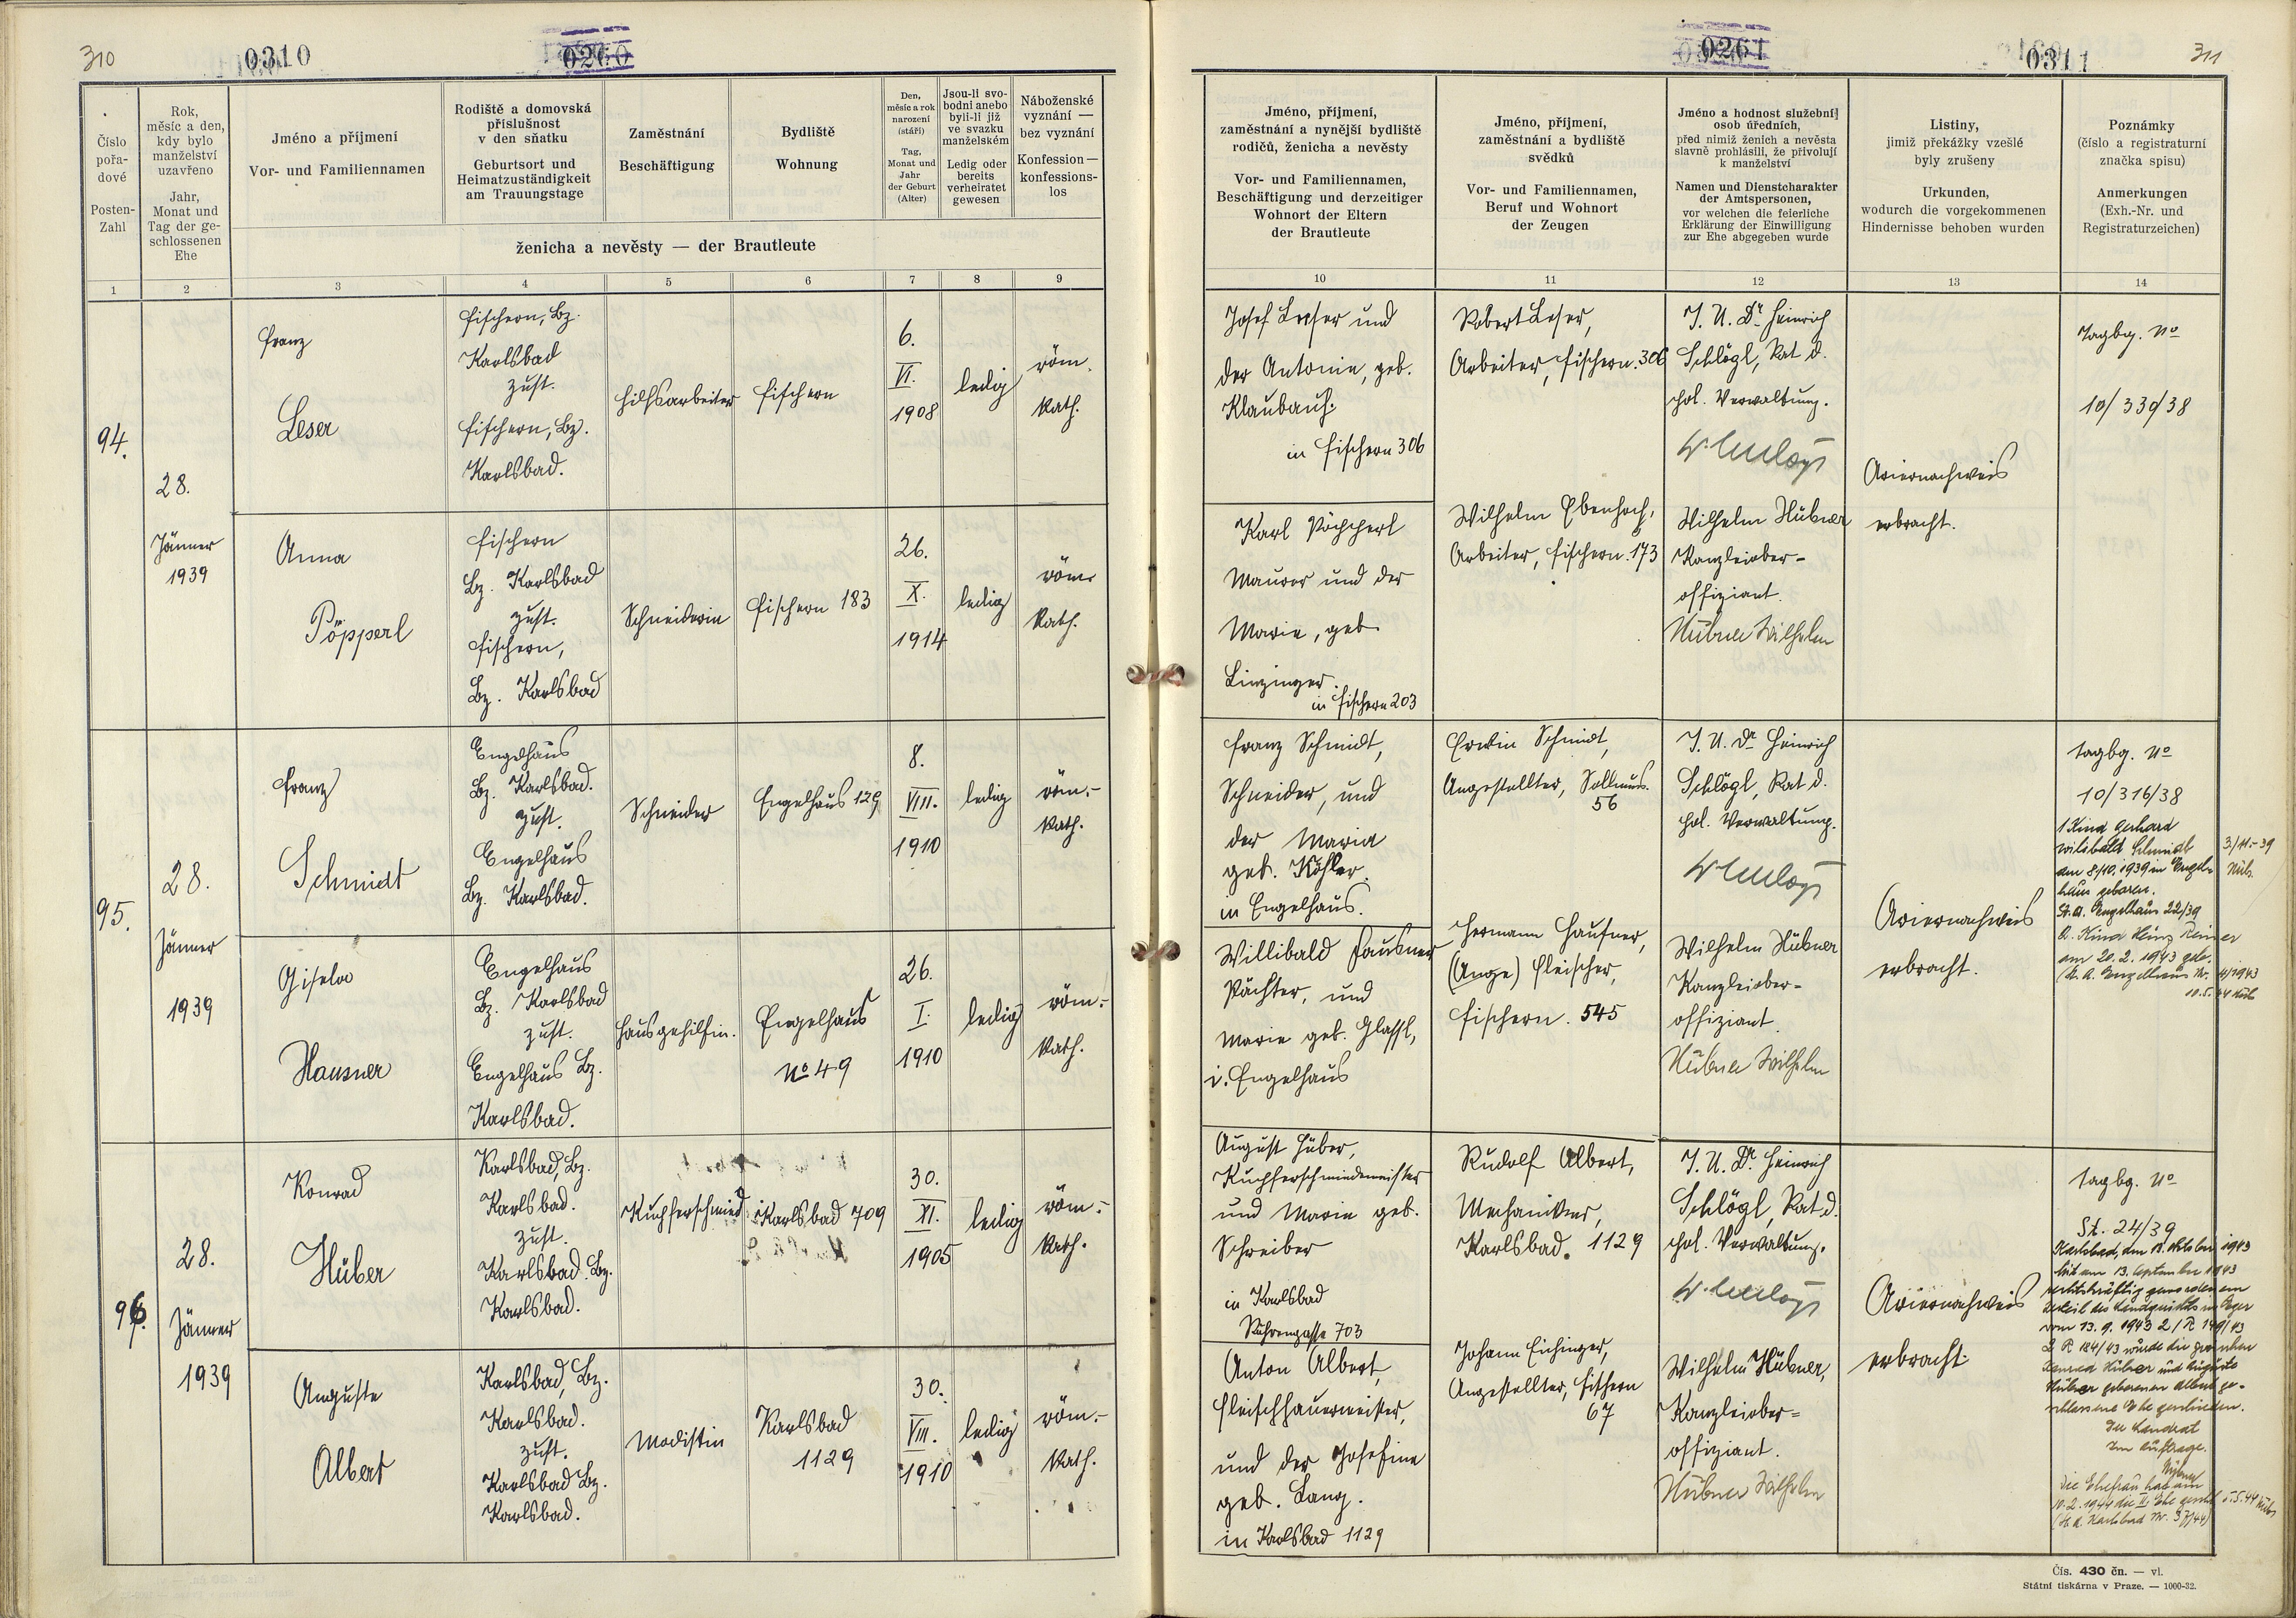 310
0310
0260
Číslo
pořa-
dové
Posten-
Zahl
Rok,
měsíc a den,
kdy bylo
manželství
uzavřeno
Jahr,
Monat und
Tag der ge-
schlossenen
Ehe
Jméno a příjmení
Vor- und Familiennamen
Rodiště a domovská
příslušnost
v den sňatku
Geburtsort und
Heimatzuständigkeit
am Trauungstage
Zaměstnání
Beschäftigung
Bydliště
Wohnung
Den,
měsíc a rok
narození
(stáří)
Tag,
Monat und
Jahr
der Geburt
(Alter)
Jsou-li svo-
bodni anebo
byli-li již
ve svazku
manželském
Ledig oder
bereits
verheiratet
gewesen
Náboženské
vyznání —
bez vyznání
Konfession —
konfessions-
los
ženicha a nevěsty — der Brautleute
1 2 3 4 5 6 7 8 9
94.
28.
Jänner
1939
Franz
Leser
Fischern, Bz.
Karlsbad
zust.
Fischern, Bz.
Karlsbad.
Hilfsarbeiter
Fischern
6.
VI.
1908
ledig
röm.
kath.
Anna
Pöpperl
Fischern
Bz. Karlsbad
zust.
Fischern,
Bz. Karlsbad
Schneiderin
Fischern 183
26.
X.
1914
ledig
röm.
kath.
95.
28.
Jänner
1939
Franz
Schmidt
Engelhaus
Bz. Karlsbad.
zust.
Engelhaus
Bz. Karlsbad.
Schneider
Engelhaus 129
8.
VIII.
1910
ledig
röm.-
kath.
Gisela
Hausner
Engelhaus
Bz. Karlsbad
zust.
Engelhaus Bz.
Karlsbad.
Hausgehilfin.
Engelhaus
No 49
26.
I.
1910
ledig
röm.-
kath.
96.
28.
Jänner
1939
Konrad
Hüber
Karlsbad, Bz.
Karlsbad.
zust.
Karlsbad. Bz.
Karlsbad.
Kupferschmied
Karlsbad 709
30.
XI.
1905
ledig
röm.-
kath.
Auguste
Albert
Karlsbad, Bz.
Karlsbad.
zust.
Karlsbad Bz.
Karlsbad.
Modistin
Karlsbad
1129
30.
VIII.
1910
ledig
röm.-
kath.
0261
0311
311
Jméno, příjmení,
zaměstnání a nynější bydliště
rodičů, ženicha a nevěsty
Vor- und Familiennamen,
Beschäftigung und derzeitiger
Wohnort der Eltern
der Brautleute
Jméno, příjmení,
zaměstnání a bydliště
svědků
Vor- und Familiennamen,
Beruf und Wohnort
der Zeugen
Jméno a hodnost služební
osob úředních,
před nimiž ženich a nevěsta
slavně prohlásili, že přivolují
k manželství
Namen und Dienstcharakter
der Amtspersonen,
vor welchen die feierliche
Erklärung der Einwilligung
zur Ehe abgegeben wurde
Listiny,
jimiž překážky vzešlé
byly zrušeny
Urkunden,
wodurch die vorgekommenen
Hindernisse behoben wurden
Poznámky
(číslo a registraturní
značka spisu)
Anmerkungen
(Exh.-Nr. und
Registraturzeichen)
10 11 12 13 14
Josef Leser und
der Antonie, geb.
Klaubauf.
in Fischern 306
Robert Leser,
Arbeiter, Fischern. 306
J. U. Dr. Heinrich
Schlögl, Rat d.
pol. Verwaltung.
Ariernachweis
erbracht.
Tagbg. No
10/330/38
Karl Pöpperl
Maurer und der
Marie, geb.
Linzinger.
in Fischern 203
Wilhelm Ebenhoch,
Arbeiter, Fischern. 173
Wilhelm Hübner
Kanzleiober-
offiziant.
Hübner Wilhelm
Franz Schmidt,
Schneider, und
der Maria
geb. Köhler.
in Engelhaus.
Erwin Schmidt,
Angestellter, Sollmus.
56
J. U. Dr. Heinrich
Schlögl, Rat d.
pol. Verwaltung.
Ariernachweis
erbracht.
Tagbg. No
10/316/38
1 Kind Gerhard
Wilibald Schmidt
am 8/10. 1939 in Engel-
haus geboren.
St. A. Engelhaus 22/39
3/11.-39
Hüb.
2. Kind Heinz Reiner
am 20.2.1943 geb.
(St. A. Engelhaus Nr. 4/1943
10.5.44 Hüb
Willibald Hausner
Pächter, und
Marie geb. Glassl,
i. Engelhaus
Hermann Hausner,
(Ange) Fleischer,
Fischern. 545
Wilhelm Hübner
Kanzleiober-
offiziant.
Hübner Wilhelm
August Hüber,
Kupferschmiedemeister
und Marie geb.
Schreiber
in Karlsbad
703
Rudolf Albert,
Mechaniker,
Karlsbad. 1129
J. U. Dr. Heinrich
Schlögl, Rat d.
pol. Verwaltung.
Ariernachweis
erbracht.
Tagbg. No
St. 24/39
Karlsbad, den 11. Oktober 1943
Mit am 13. September 1943
rechtskräftig gewordenem
Urteil des Landgerichts in Eger
vom 13.9.1943 2/R 149/43
2 R 184/43 wurde die zwischen
Konrad Hüber und Auguste
Hüber geborenen Albert ge-
schlossene Ehe geschieden.
Der Landrat
Im Auftrage.
Hübner
Die Ehefrau hat am
10.2.1944 die II. Ehe geschl.
(St. A. Karlsbad Nr. 37/44)
5.5.44 Hüb
Anton Albert,
Fleischhauermeister,
und der Josefine
geb. Lang.
in Karlsbad 1129
Johann Eichinger,
Angestellter, Fischern
67
Wilhelm Hübner,
Kanzleiober-
offiziant.
Hübner Wilhelm
Čís. 430 čn. — vl.
Státní tiskárna v Praze. — 1000-32.